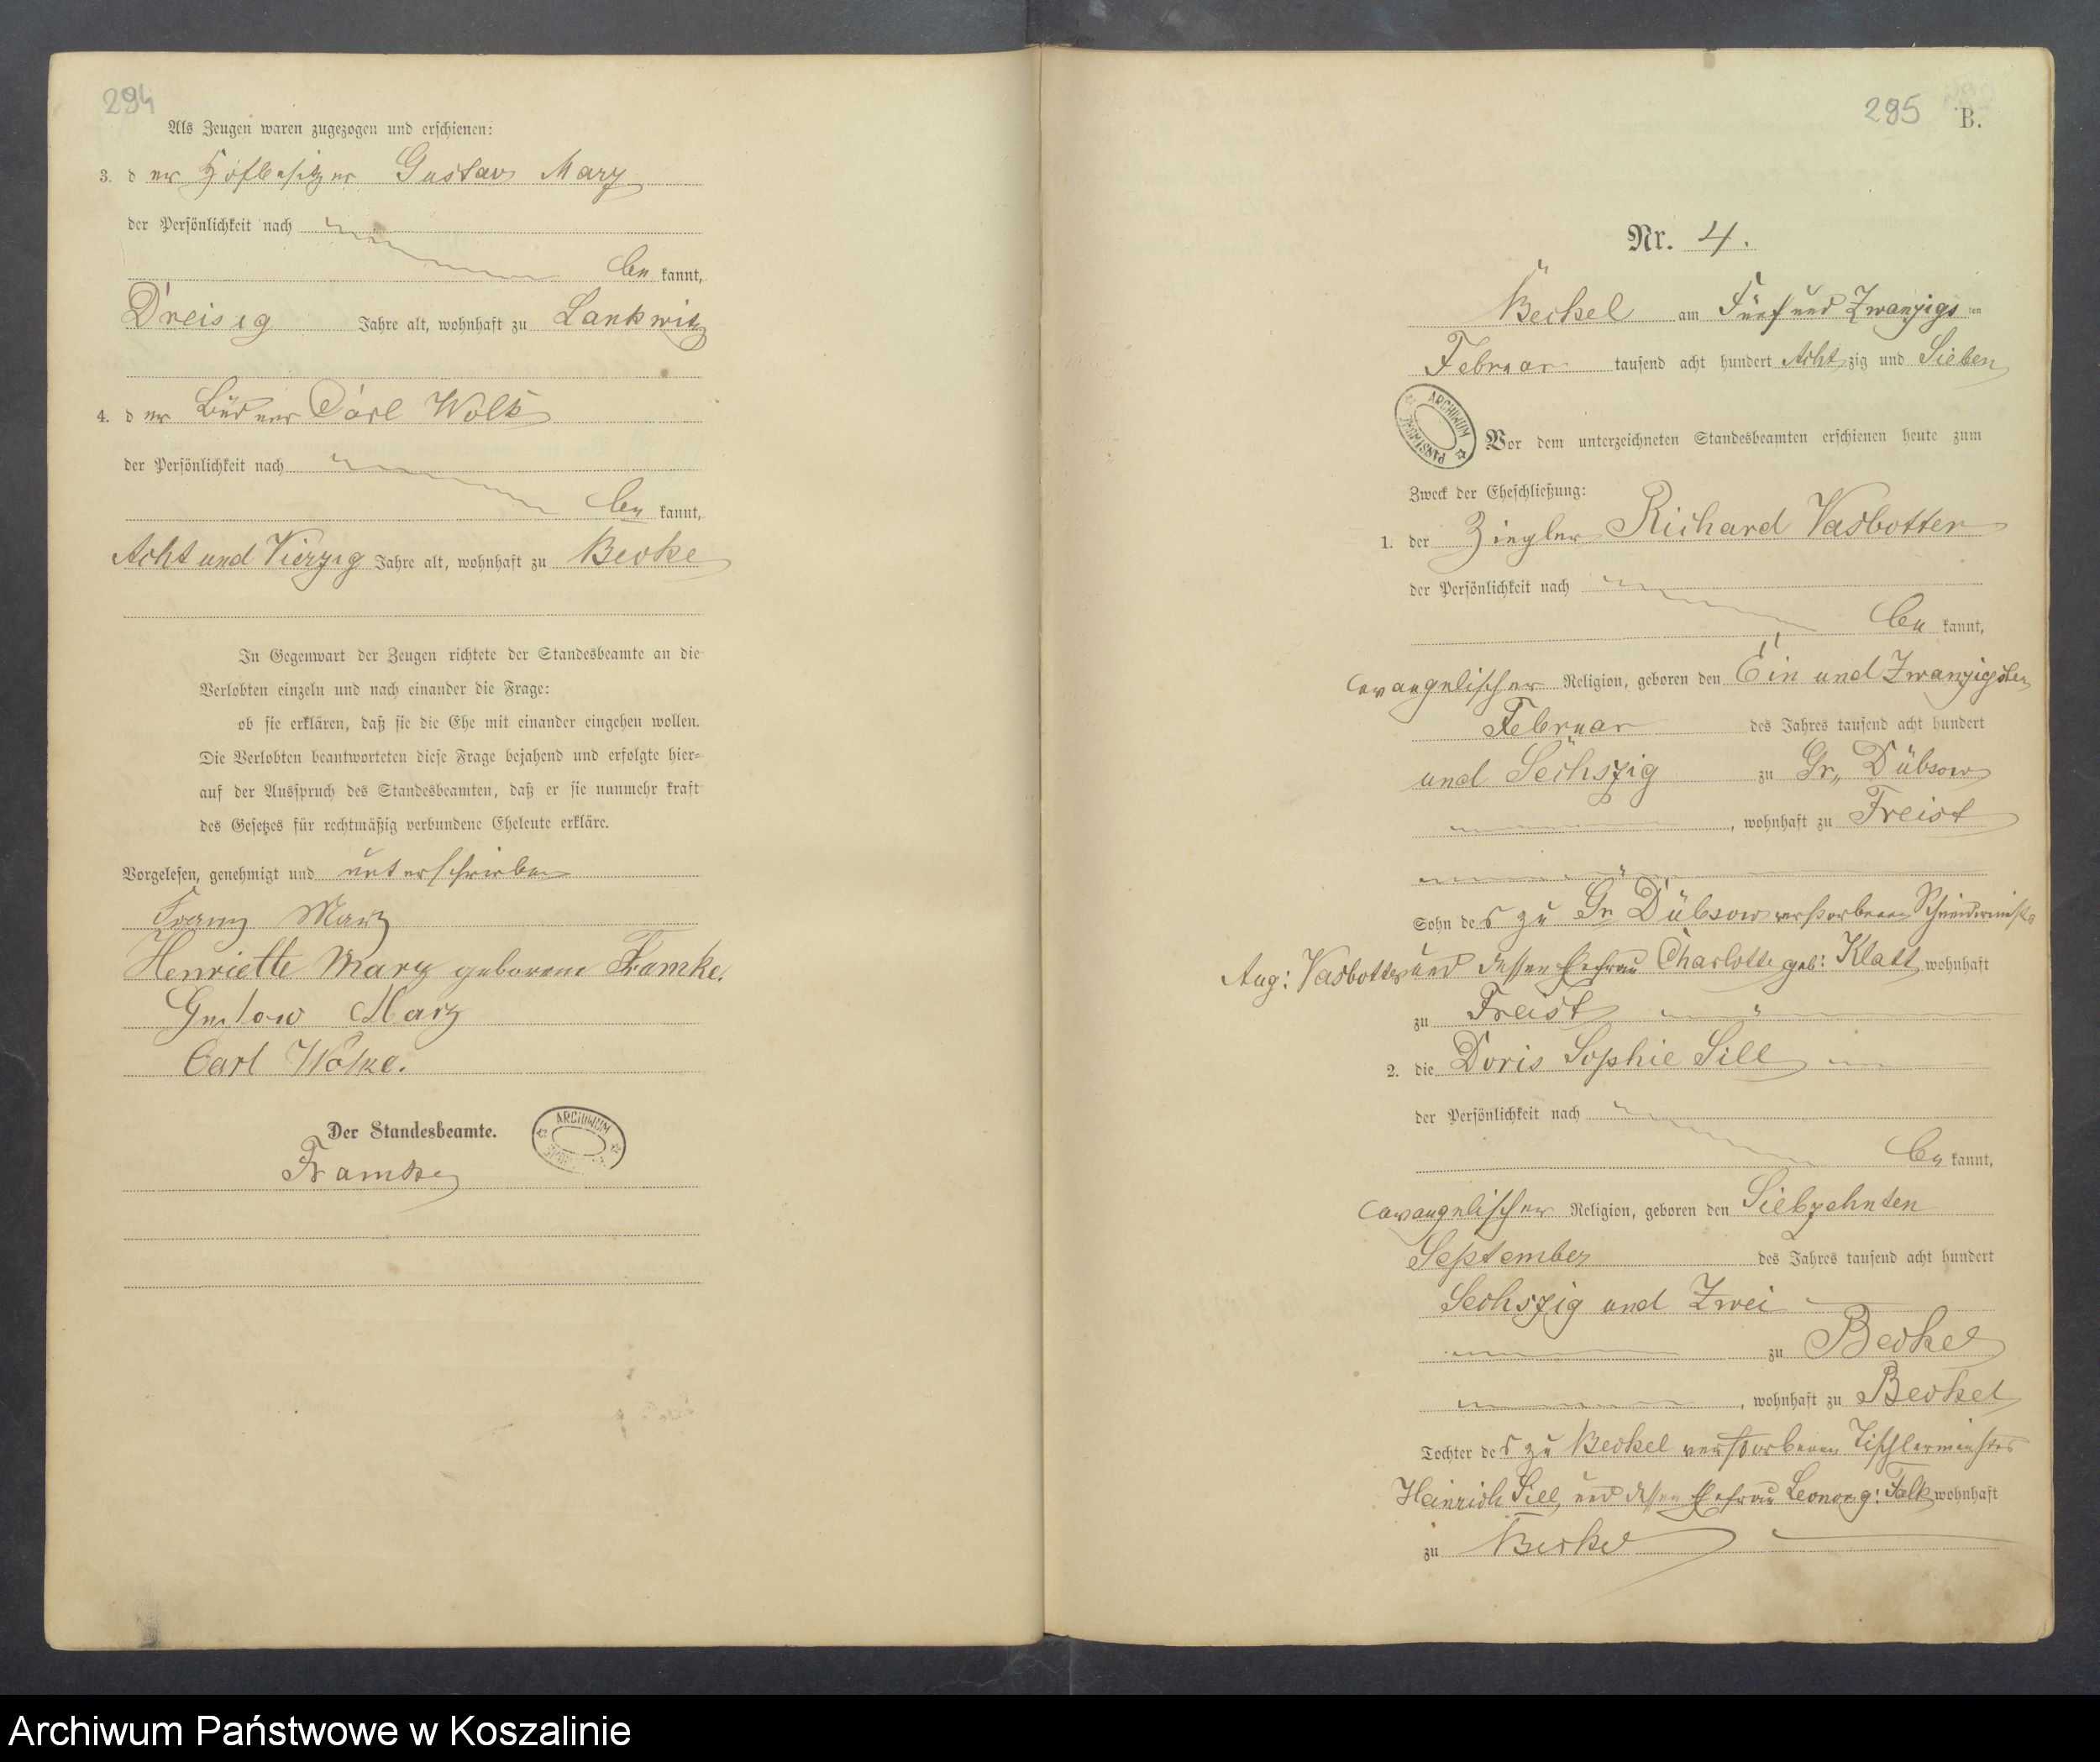 294
Als Zeugen waren zugezogen und erschienen:
3. der Hofbesitzer Gustav Marz
der Persönlichkeit nach
be kannt,
Dreisig Jahre alt, wohnhaft zu Lankwitz
4. der Büdner Carl Wolk
der Persönlichkeit nach
be kannt,
Acht und Vierzig Jahre alt, wohnhaft zu Beckel
In Gegenwart der Zeugen richtete der Standesbeamte an die
Verlobten einzeln und nach einander die Frage:
ob sie erklären, daß sie die Ehe mit einander eingehen wollen.
Die Verlobten beantworteten diese Frage bejahend und erfolgte hier=
auf der Ausspruch des Standesbeamten, daß er sie nunmehr kraft
des Gesetzes für rechtmäßig verbundene Eheleute erkläre.
Vorgelesen, genehmigt und unterschrieben
Franz Marz
Henriette Marz geborene Framke.
Gustow Marz
Carl Wolke.
Der Standesbeamte.
Framke
ARCHIWUM
295 B.
Nr. 4.
Beckel am Fünf und Zwanzigs ten
Februar tausend acht hundert Acht zig und Sieben
ARCHIWUM PAŃSTWOWE
Vor dem unterzeichneten Standesbeamten erschienen heute zum
Zweck der Eheschließung:
1. der Ziegler Richard Vasbotter
der Persönlichkeit nach
be kannt,
evangelischer Religion, geboren den Ein und Zwanzigsten
Februar des Jahres tausend acht hundert
und Sechszig zu Gr. Dübsow
, wohnhaft zu Freist
Sohn des zu Gr Dübsow verstorbenen Schneidermeisters
Aug: Vasbotter und dessen Ehefrau Charlotte geb: Klatt wohnhaft
zu Freist
2. die Doris Sophie Sill
der Persönlichkeit nach
be kannt,
evangelischer Religion, geboren den Siebzehnten
September des Jahres tausend acht hundert
Sechszig und Zwei
zu Beckel
, wohnhaft zu Beckel
Tochter des zu Beckel verstorbenen Tischlermeisters
Heinrich Sill, und dessen Ehefrau Leonore g: Falk wohnhaft
zu Beckel
Archiwum Państwowe w Koszalinie